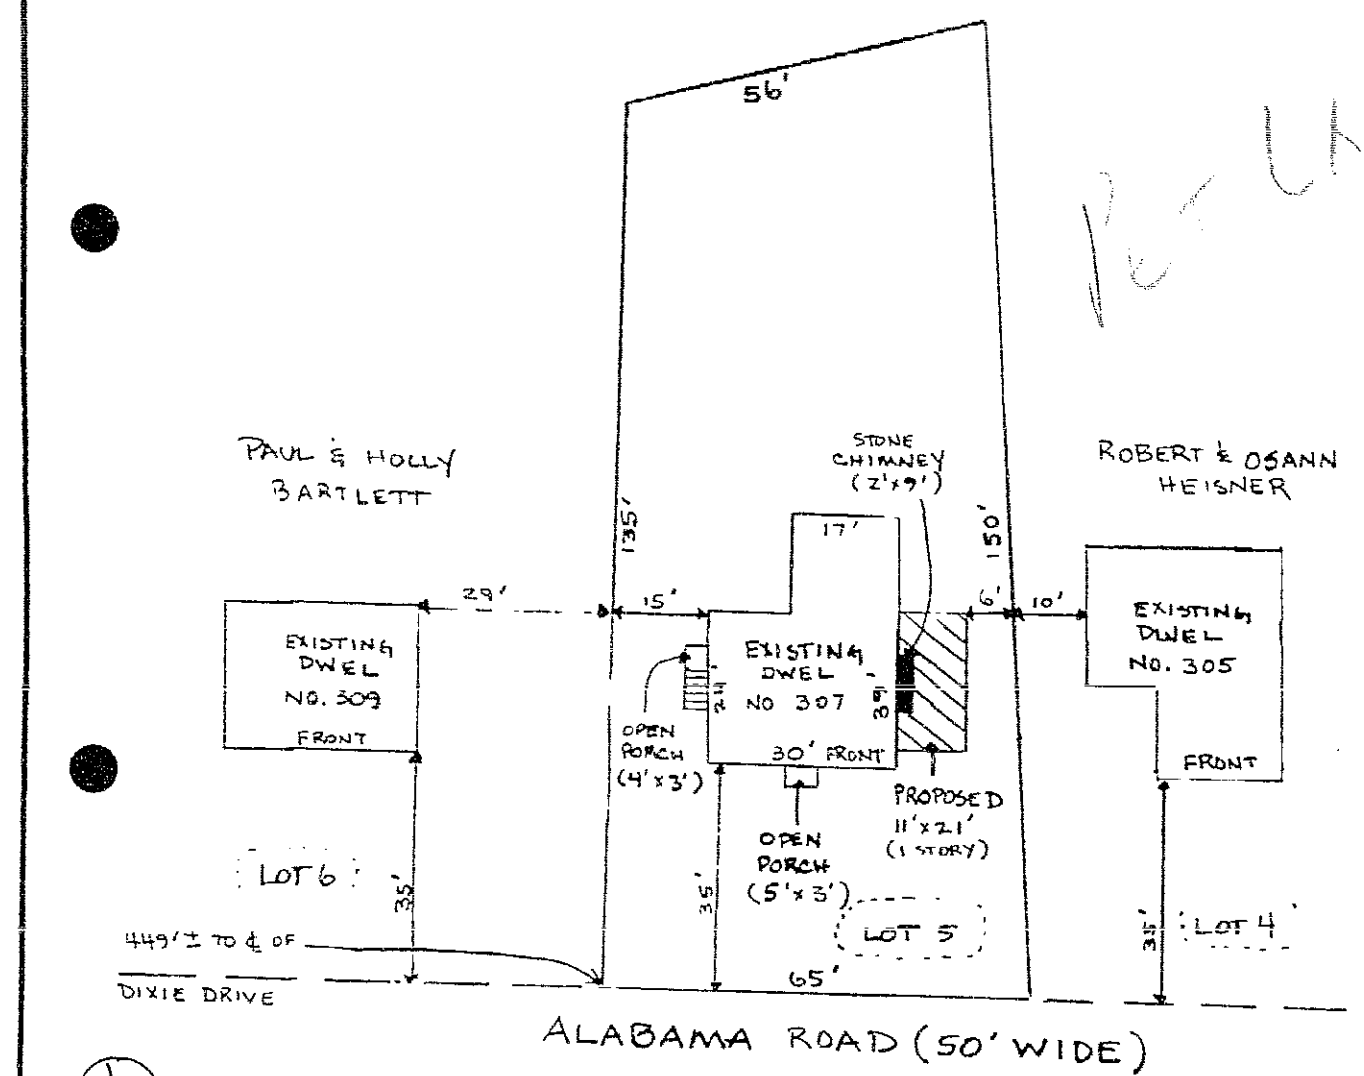 56'
PAUL & HOLLY
BARTLETT
STONE
CHIMNEY
(2'x9')
ROBERT & OSANN
HEISNER
135'
150'
17'
29'
15'
6'
10'
EXISTING
DWEL
NO. 309
FRONT
EXISTING
DWEL
NO 307
24'
39'
30' FRONT
EXISTING
DWEL
NO. 305
FRONT
OPEN
PORCH
(4'x3')
OPEN
PORCH
(5'x3')
PROPOSED
11'x21'
(1 STORY)
LOT 6
35'
35'
LOT 5
35'
LOT 4
449'± TO ℄ OF
DIXIE DRIVE
65'
ALABAMA ROAD (50' WIDE)